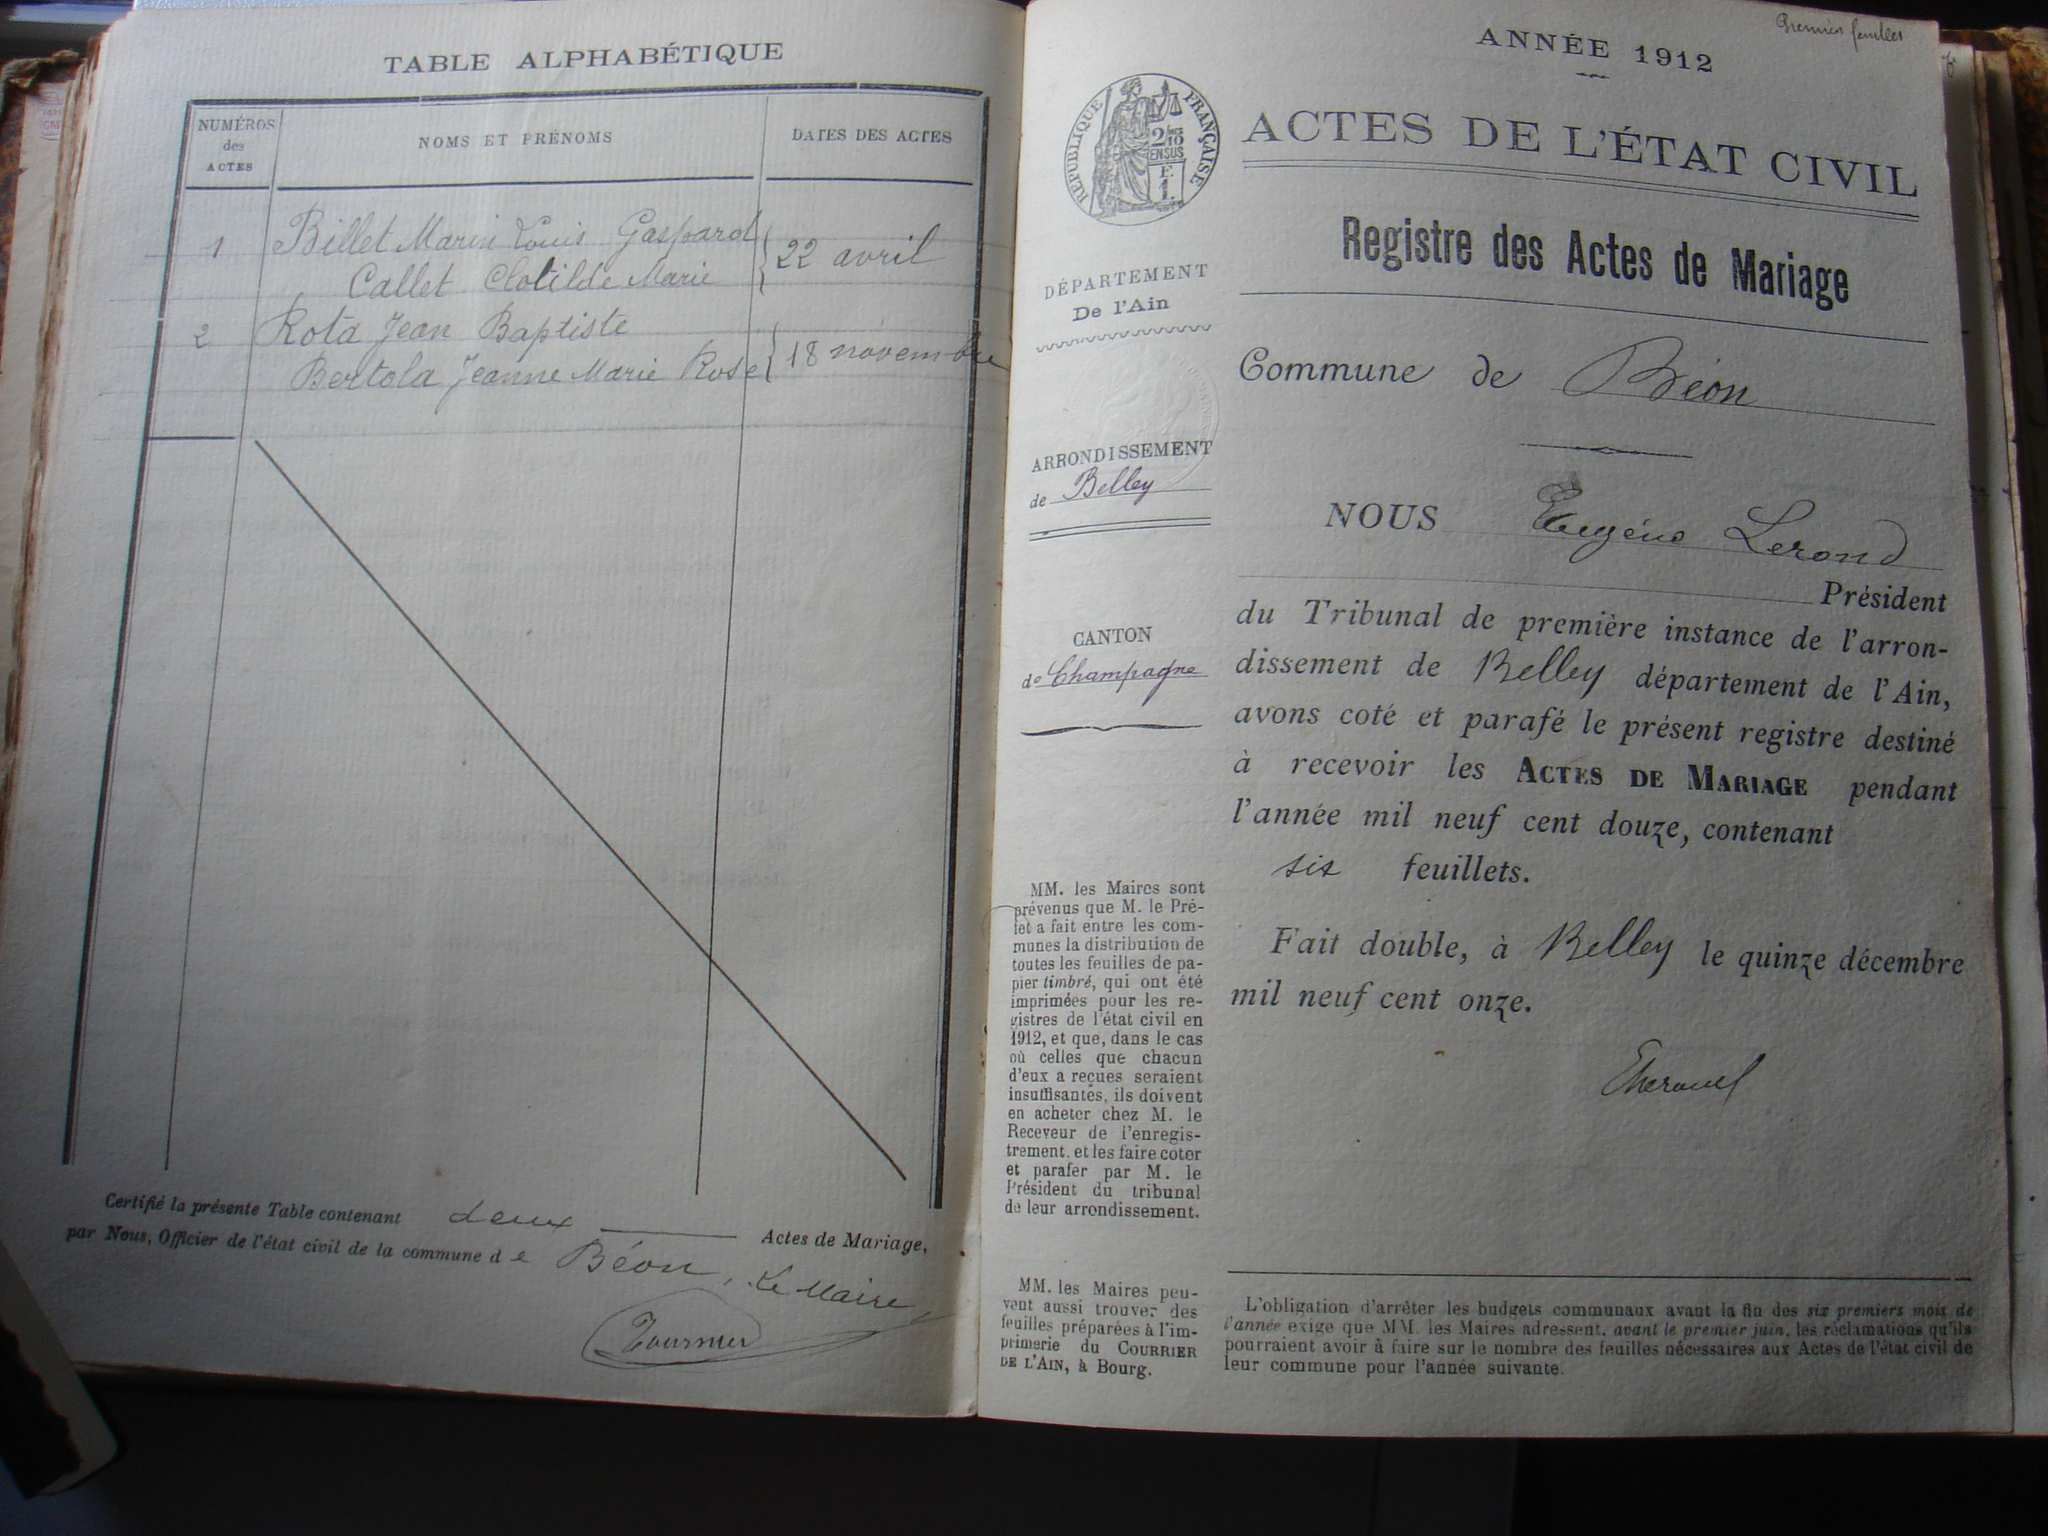 TABLE ALPHABÉTIQUE
NUMÉROS
des
ACTES
NOMS ET PRÉNOMS
DATES DES ACTES
1
Billet Marin Louis Gaspard
Callet Clotilde Marie
22 avril
2
Rota Jean Baptiste
Bertola Jeanne Marie Rose
18 novembre
Certifié la présente Table contenant deux Actes de Mariage,
par Nous, Officier de l'état civil de la commune de Béon, Le Maire,
Tournier
Premier feuillet
ANNÉE 1912
RÉPUBLIQUE FRANÇAISE
2/10
EN SUS
F.
1.
ACTES DE L'ÉTAT CIVIL
Registre des Actes de Mariage
DÉPARTEMENT
De l'Ain
Commune de Béon
ARRONDISSEMENT
de Belley
NOUS Eugène Lerond
Président
CANTON
de Champagne
du Tribunal de première instance de l'arron-
dissement de Belley département de l'Ain,
avons coté et parafé le présent registre destiné
à recevoir les ACTES DE MARIAGE pendant
l'année mil neuf cent douze, contenant
six feuillets.
Fait double, à Belley le quinze décembre
mil neuf cent onze.
MM. les Maires sont
prévenus que M. le Pré-
fet a fait entre les com-
munes la distribution de
toutes les feuilles de pa-
pier timbré, qui ont été
imprimées pour les re-
gistres de l'état civil en
1912, et que, dans le cas
où celles que chacun
d'eux a reçues seraient
insuffisantes, ils doivent
en acheter chez M. le
Receveur de l'enregis-
trement, et les faire coter
et parafer par M. le
Président du tribunal
de leur arrondissement.
MM. les Maires peu-
vent aussi trouver des
feuilles préparées à l'im-
primerie du COURRIER
DE L'AIN, à Bourg.
L'obligation d'arrêter les budgets communaux avant la fin des six premiers mois de
l'année exige que MM. les Maires adressent, avant le premier juin, les réclamations qu'ils
pourraient avoir à faire sur le nombre des feuilles nécessaires aux Actes de l'état civil de
leur commune pour l'année suivante.